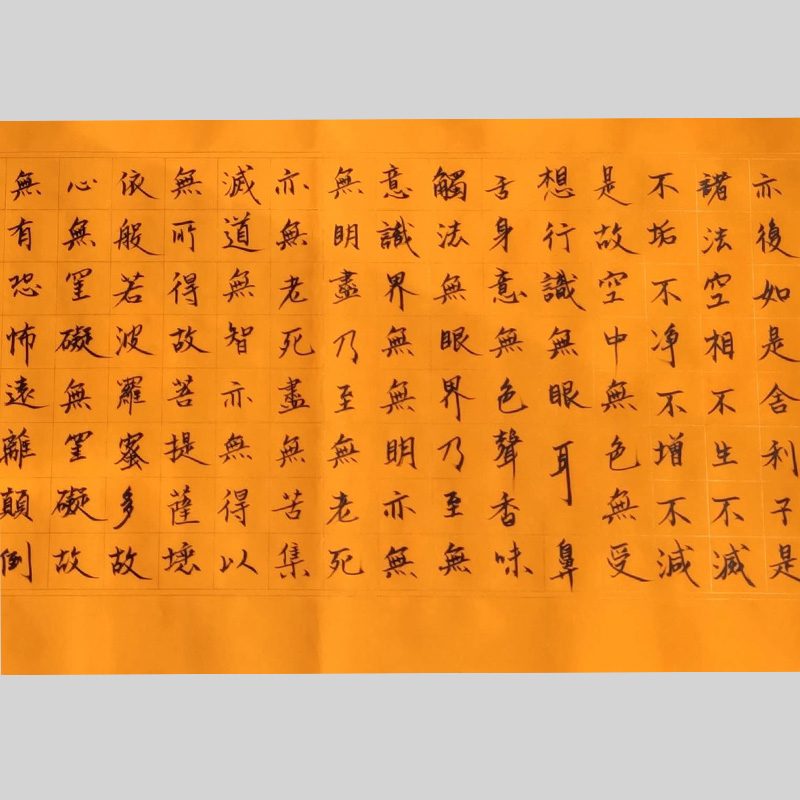 亦後如是舍利子是
諸法空相不生不滅
不垢不净不增不減
是故空中無色無受
想行識無眼耳鼻
舌身意無色聲香味
觸法無眼界乃至無
意識界無無明亦無
無明盡乃至無老死
亦無老死盡無苦集
滅道無智亦無得以
無所得故菩提薩埵
依般若波羅蜜多故
心無罣礙無罣礙故
無有恐怖遠離顛倒